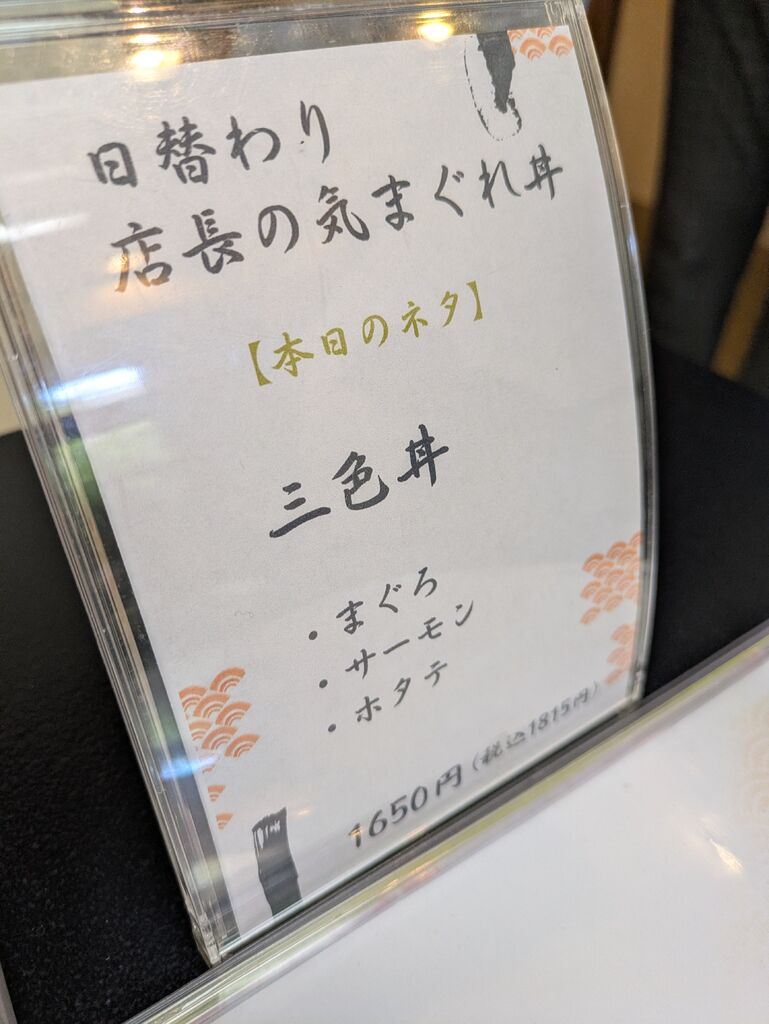 日替わり
店長の気まぐれ丼
【本日のネタ】
三色丼
・まぐろ
・サーモン
・ホタテ
1650円(税込1815円)